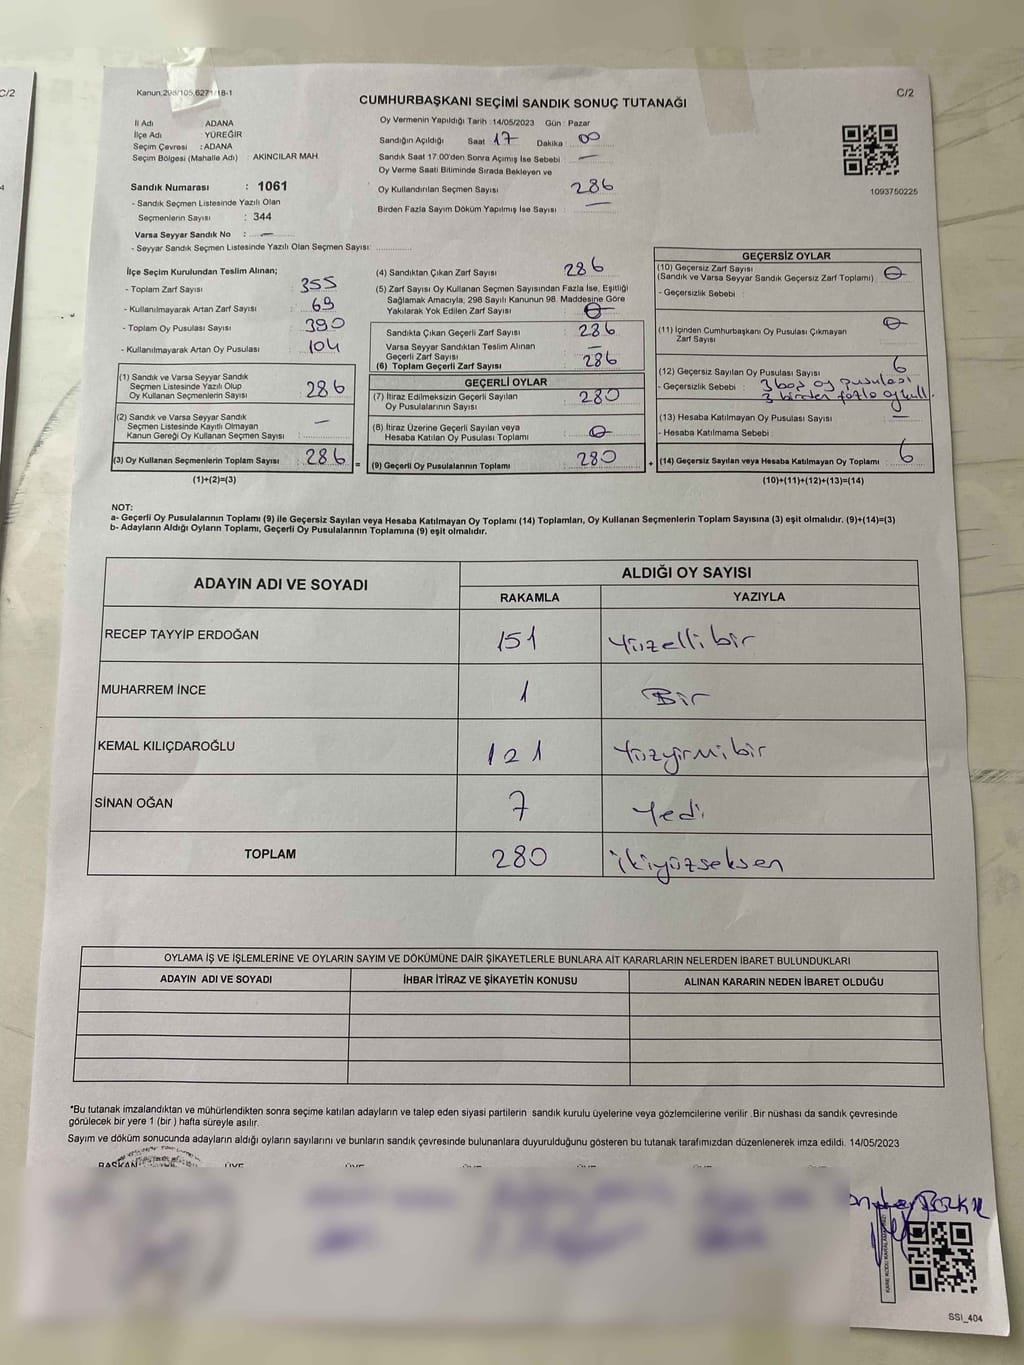 C/2
4
Kanun,298/105,6271/18-1
CUMHURBAŞKANI SEÇİMİ SANDIK SONUÇ TUTANAĞI
C/2
İl Adı ADANA
İlçe Adı YÜREĞİR
Seçim Çevresi : ADANA
Seçim Bölgesi (Mahalle Adı) : AKINCILAR MAH.
Sandık Numarası : 1061
- Sandık Seçmen Listesinde Yazılı Olan
Seçmenlerin Sayısı : 344
Varsa Seyyar Sandık No : —
- Seyyar Sandık Seçmen Listesinde Yazılı Olan Seçmen Sayısı:
Oy Vermenin Yapıldığı Tarih :14/05/2023 Gün : Pazar
Sandığın Açıldığı Saat 17 Dakika 00
Sandık Saat 17.00'den Sonra Açımış İse Sebebi —
Oy Verme Saati Bitiminde Sırada Bekleyen ve
Oy Kullandırılan Seçmen Sayısı 286
Birden Fazla Sayım Döküm Yapılmış İse Sayısı : —
1093750225
İlçe Seçim Kurulundan Teslim Alınan;
- Toplam Zarf Sayısı : 355
- Kullanılmayarak Artan Zarf Sayısı : 69
- Toplam Oy Pusulası Sayısı : 390
- Kullanılmayarak Artan Oy Pusulası : 104
(1) Sandık ve Varsa Seyyar Sandık
Seçmen Listesinde Yazılı Olup
Oy Kullanan Seçmenlerin Sayısı : 286
(2) Sandık ve Varsa Seyyar Sandık
Seçmen Listesinde Kayıtlı Olmayan
Kanun Gereği Oy Kullanan Seçmen Sayısı : —
(3) Oy Kullanan Seçmenlerin Toplam Sayısı : 286
(1)+(2)=(3)
(4) Sandıktan Çıkan Zarf Sayısı 286
(5) Zarf Sayısı Oy Kullanan Seçmen Sayısından Fazla İse, Eşitliği
Sağlamak Amacıyla, 298 Sayılı Kanunun 98. Maddesine Göre
Yakılarak Yok Edilen Zarf Sayısı : 0
Sandıkta Çıkan Geçerli Zarf Sayısı : 286
Varsa Seyyar Sandıktan Teslim Alınan
Geçerli Zarf Sayısı : —
(6) Toplam Geçerli Zarf Sayısı : 286
GEÇERLİ OYLAR
(7) İtiraz Edilmeksizin Geçerli Sayılan
Oy Pusulalarının Sayısı : 280
(8) İtiraz Üzerine Geçerli Sayılan veya
Hesaba Katılan Oy Pusulası Toplamı : 0
= (9) Geçerli Oy Pusulalarının Toplamı : 280
GEÇERSİZ OYLAR
(10) Geçersiz Zarf Sayısı
(Sandık ve Varsa Seyyar Sandık Geçersiz Zarf Toplamı) : 0
- Geçersizlik Sebebi :
(11) İçinden Cumhurbaşkanı Oy Pusulası Çıkmayan
Zarf Sayısı : 0
(12) Geçersiz Sayılan Oy Pusulası Sayısı : 6
- Geçersizlik Sebebi : 3 boş oy pusulası
3 birden fazla oy kull.
(13) Hesaba Katılmayan Oy Pusulası Sayısı : —
- Hesaba Katılmama Sebebi :
+ (14) Geçersiz Sayılan veya Hesaba Katılmayan Oy Toplamı : 6
(10)+(11)+(12)+(13)=(14)
NOT:
a- Geçerli Oy Pusulalarının Toplamı (9) ile Geçersiz Sayılan veya Hesaba Katılmayan Oy Toplamı (14) Toplamları, Oy Kullanan Seçmenlerin Toplam Sayısına (3) eşit olmalıdır. (9)+(14)=(3)
b- Adayların Aldığı Oyların Toplamı, Geçerli Oy Pusulalarının Toplamına (9) eşit olmalıdır.
ADAYIN ADI VE SOYADI ALDIĞI OY SAYISI
RAKAMLA YAZIYLA
RECEP TAYYİP ERDOĞAN 151 Yüzellibir
MUHARREM İNCE 1 Bir
KEMAL KILIÇDAROĞLU 121 Yüzyirmibir
SİNAN OĞAN 7 Yedi
TOPLAM 280 İkiyüzseksen
OYLAMA İŞ VE İŞLEMLERİNE VE OYLARIN SAYIM VE DÖKÜMÜNE DAİR ŞİKAYETLERLE BUNLARA AİT KARARLARIN NELERDEN İBARET BULUNDUKLARI
ADAYIN ADI VE SOYADI İHBAR İTİRAZ VE ŞİKAYETİN KONUSU ALINAN KARARIN NEDEN İBARET OLDUĞU
*Bu tutanak imzalandıktan ve mühürlendikten sonra seçime katılan adayların ve talep eden siyasi partilerin sandık kurulu üyelerine veya gözlemcilerine verilir .Bir nüshası da sandık çevresinde
görülecek bir yere 1 (bir ) hafta süreyle asılır.
Sayım ve döküm sonucunda adayların aldığı oyların sayılarını ve bunların sandık çevresinde bulunanlara duyurulduğunu gösteren bu tutanak tarafımızdan düzenlenerek imza edildi. 14/05/2023
BAŞKAN ÜYE ÜYE ÜYE ÜYE ÜYE ÜYE
SSI_404